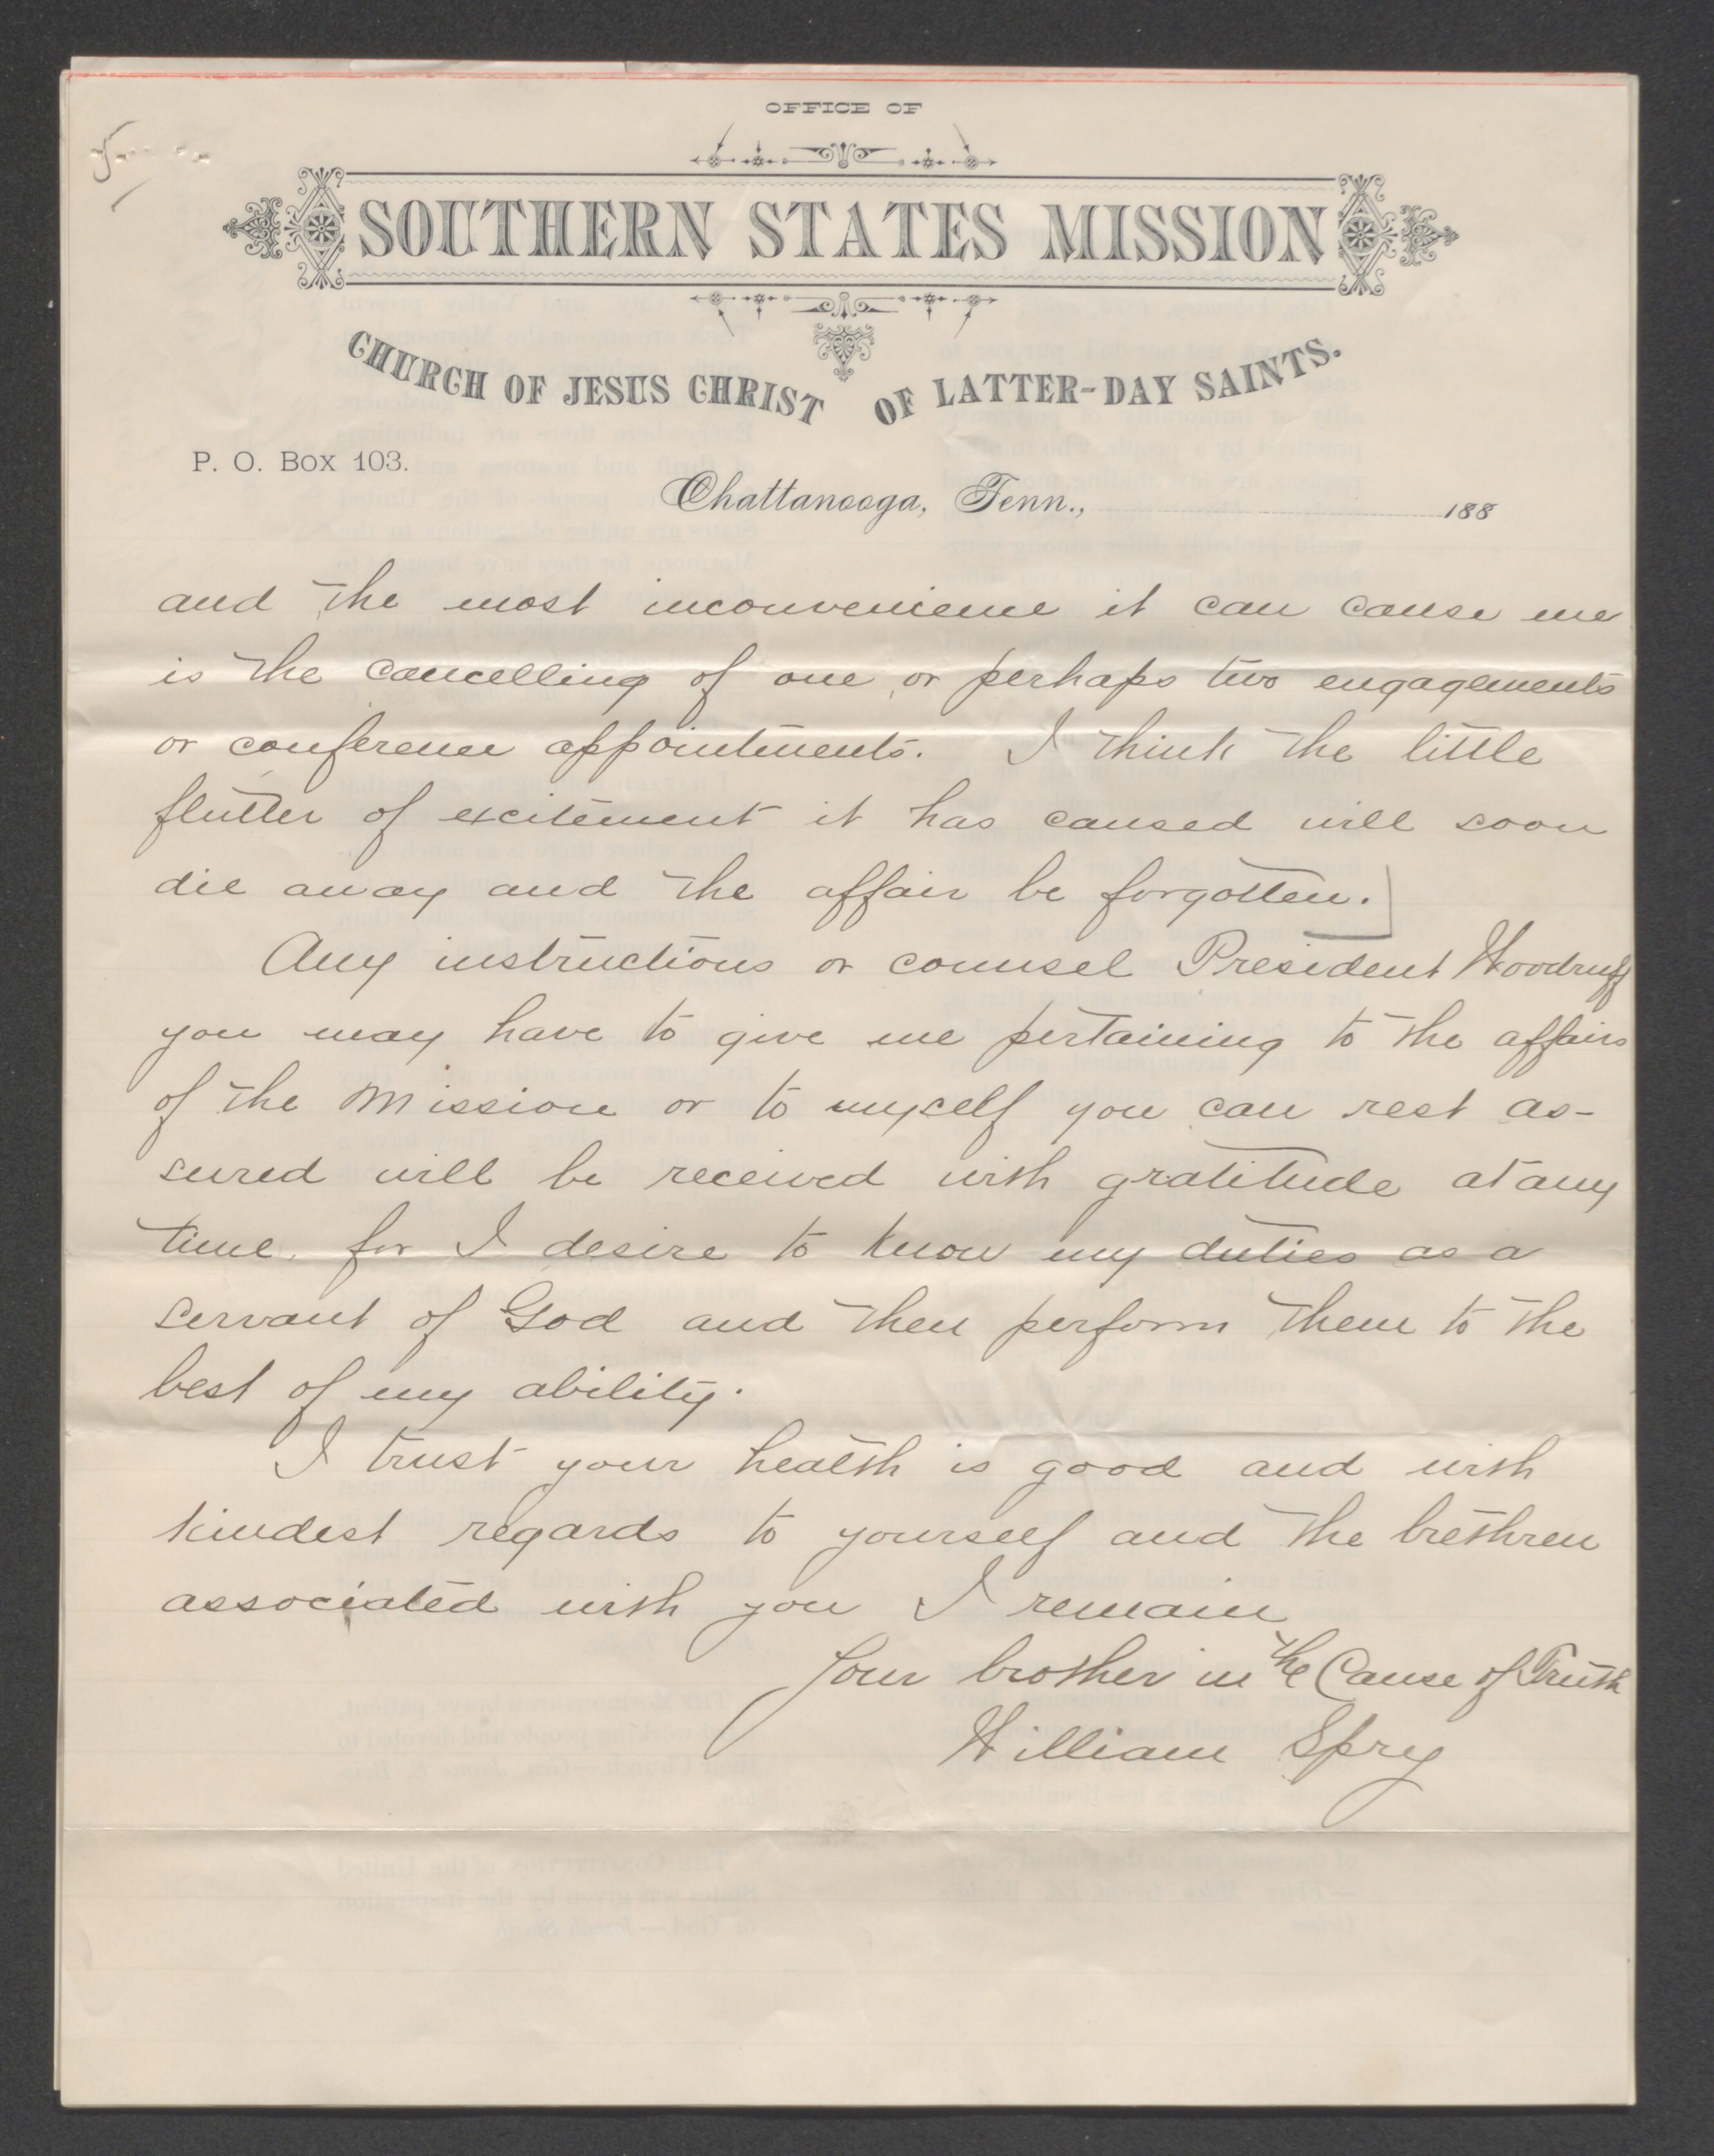 OFFICE OF
SOUTHERN STATES MISSION
CHURCH OF JESUS CHRIST OF LATTER-DAY SAINTS.
P. O. Box 103.
Chattanooga, Tenn., 188
and the most inconvenience it can cause me
is the cancelling of one or perhaps two engagements
or conference appointments. I think the little
flutter of excitement it has caused will soon
die away and the affair be forgotten.
Any instructions or counsel President Woodruff
you may have to give me pertaining to the affairs
of the Mission or to myself you can rest as-
sured will be received with gratitude at any
time. for I desire to know my duties as a
servant of God and then perform them to the
best of my ability.
I trust your health is good and with
kindest regards to yourself and the brethren
associated with you I remain
Your brother in the Cause of Truth
William Spry